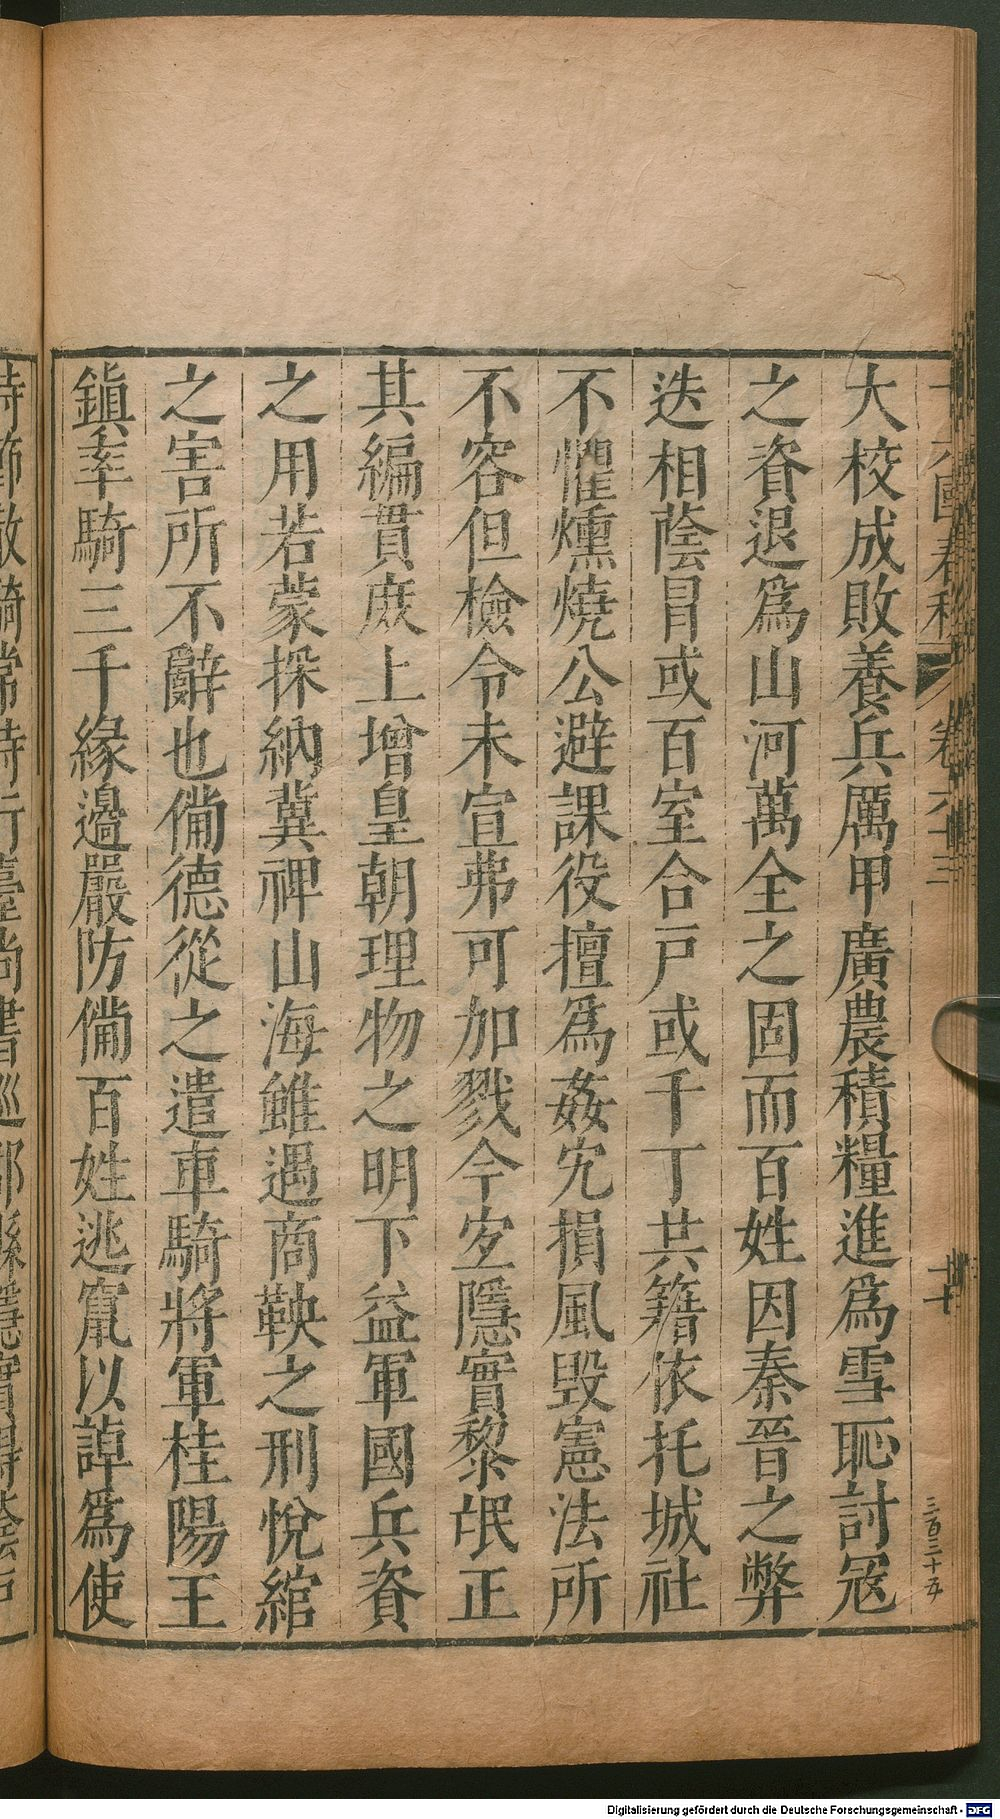 大校成敗養兵厲甲廣農積糧進爲雪恥討冦
之資退爲山河萬全之固而百姓因秦晉之弊
迭相蔭冒或百室合戸或千丁共籍依托城社
不懼燻燒公避課役擅爲姦宄損風毀憲法所
不容但檢令未宣弗可加戮今宐隱實黎氓正
其編貫庶上增皇朝理物之明下益軍國兵資
之用若蒙採納兾裨山海雖遇商鞅之刑悅綰
之害所不辭也僃德從之遣車騎將軍桂陽王
鎭率騎三千緣邊嚴防僃百姓逃竄以諱爲使
三百二十五
Digitalisierung gefördert durch die Deutsche Forschungsgemeinschaft - DFG